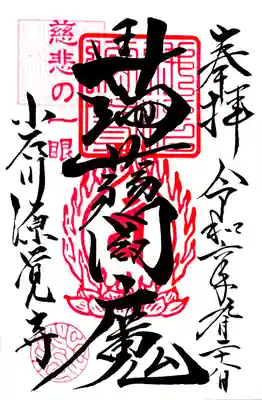 奉拝
令和二年 月二十八日
蒟蒻閻魔
慈悲の一眼
小石川源覚寺